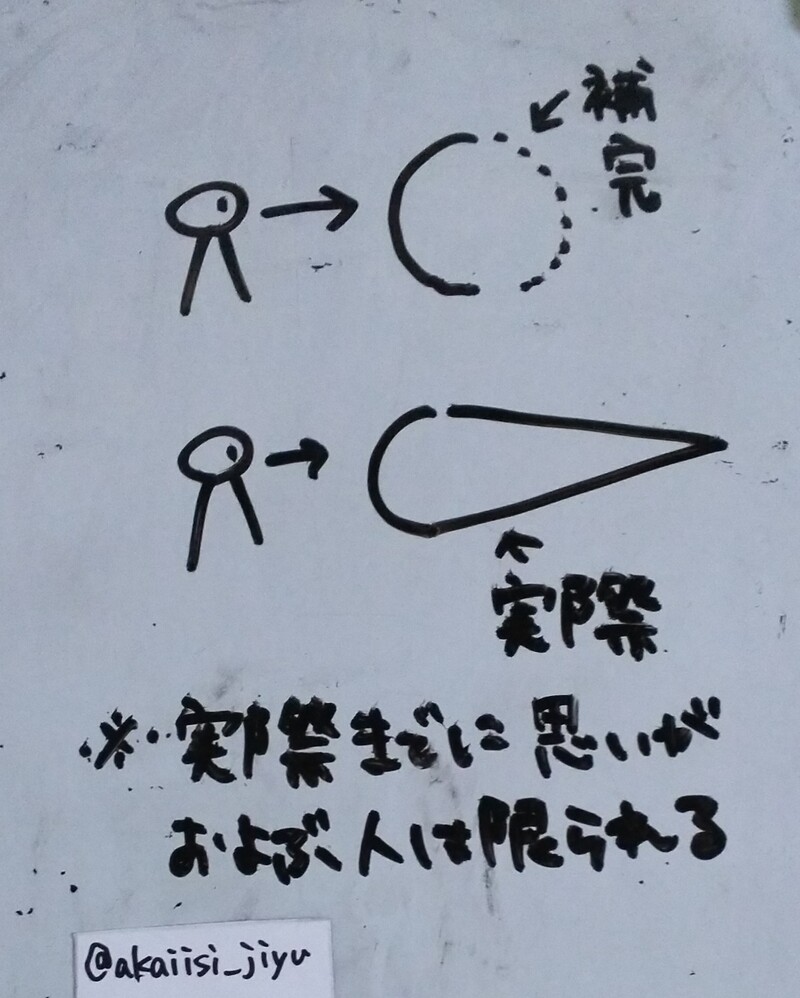 補完
実際
※実際までに思いが
およぶ人は限られる
@akaiisi_jiyu